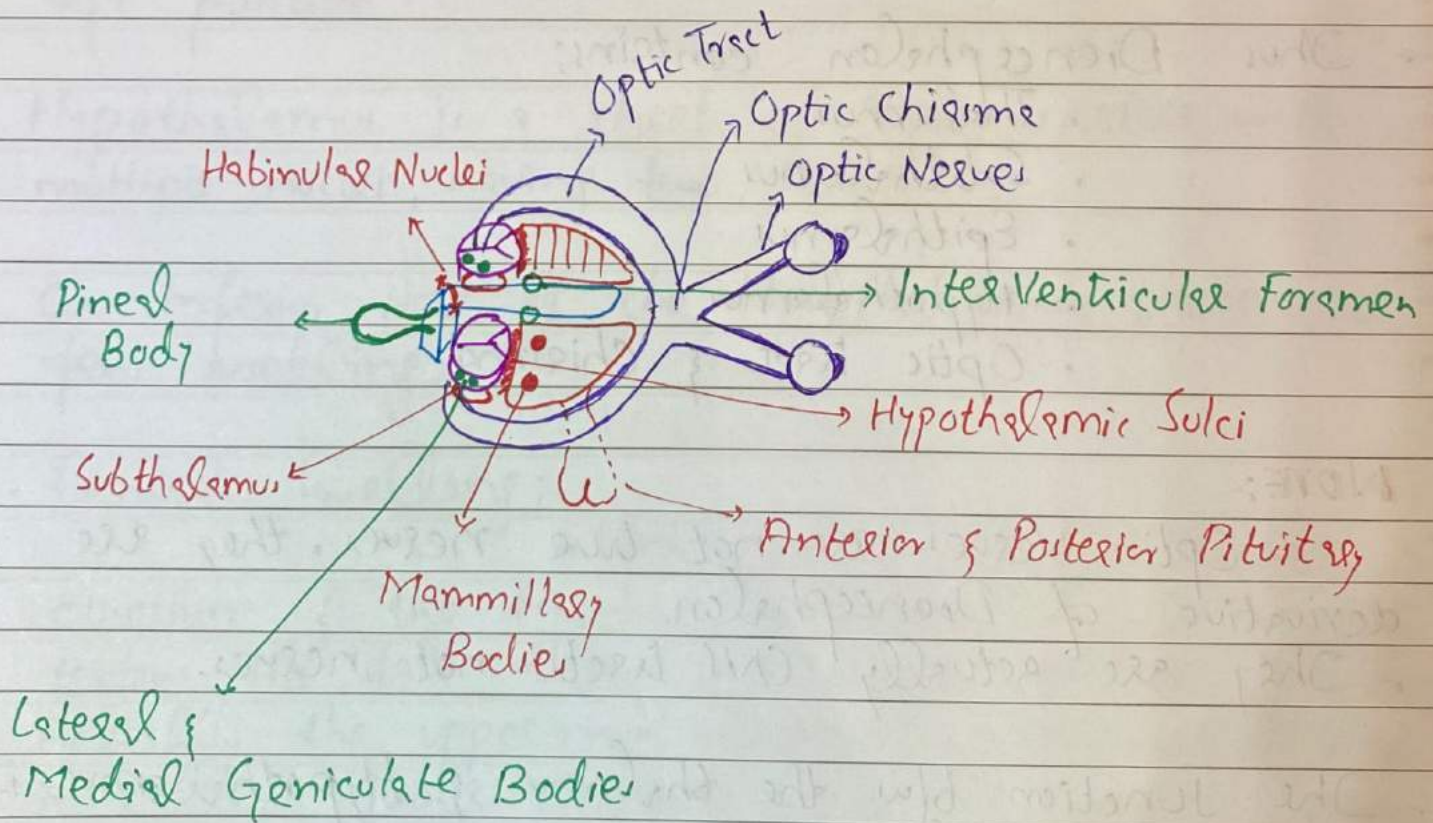 Optic Tract
Optic Chiasma
Habinular Nuclei
Optic Nerves
Pineal
Body
Inter Ventricular Foramen
Hypothalamic Sulci
Subthalamus
Anterior & Posterior Pituitary
Mammillary
Bodies
Lateral &
Medial Geniculate Bodies